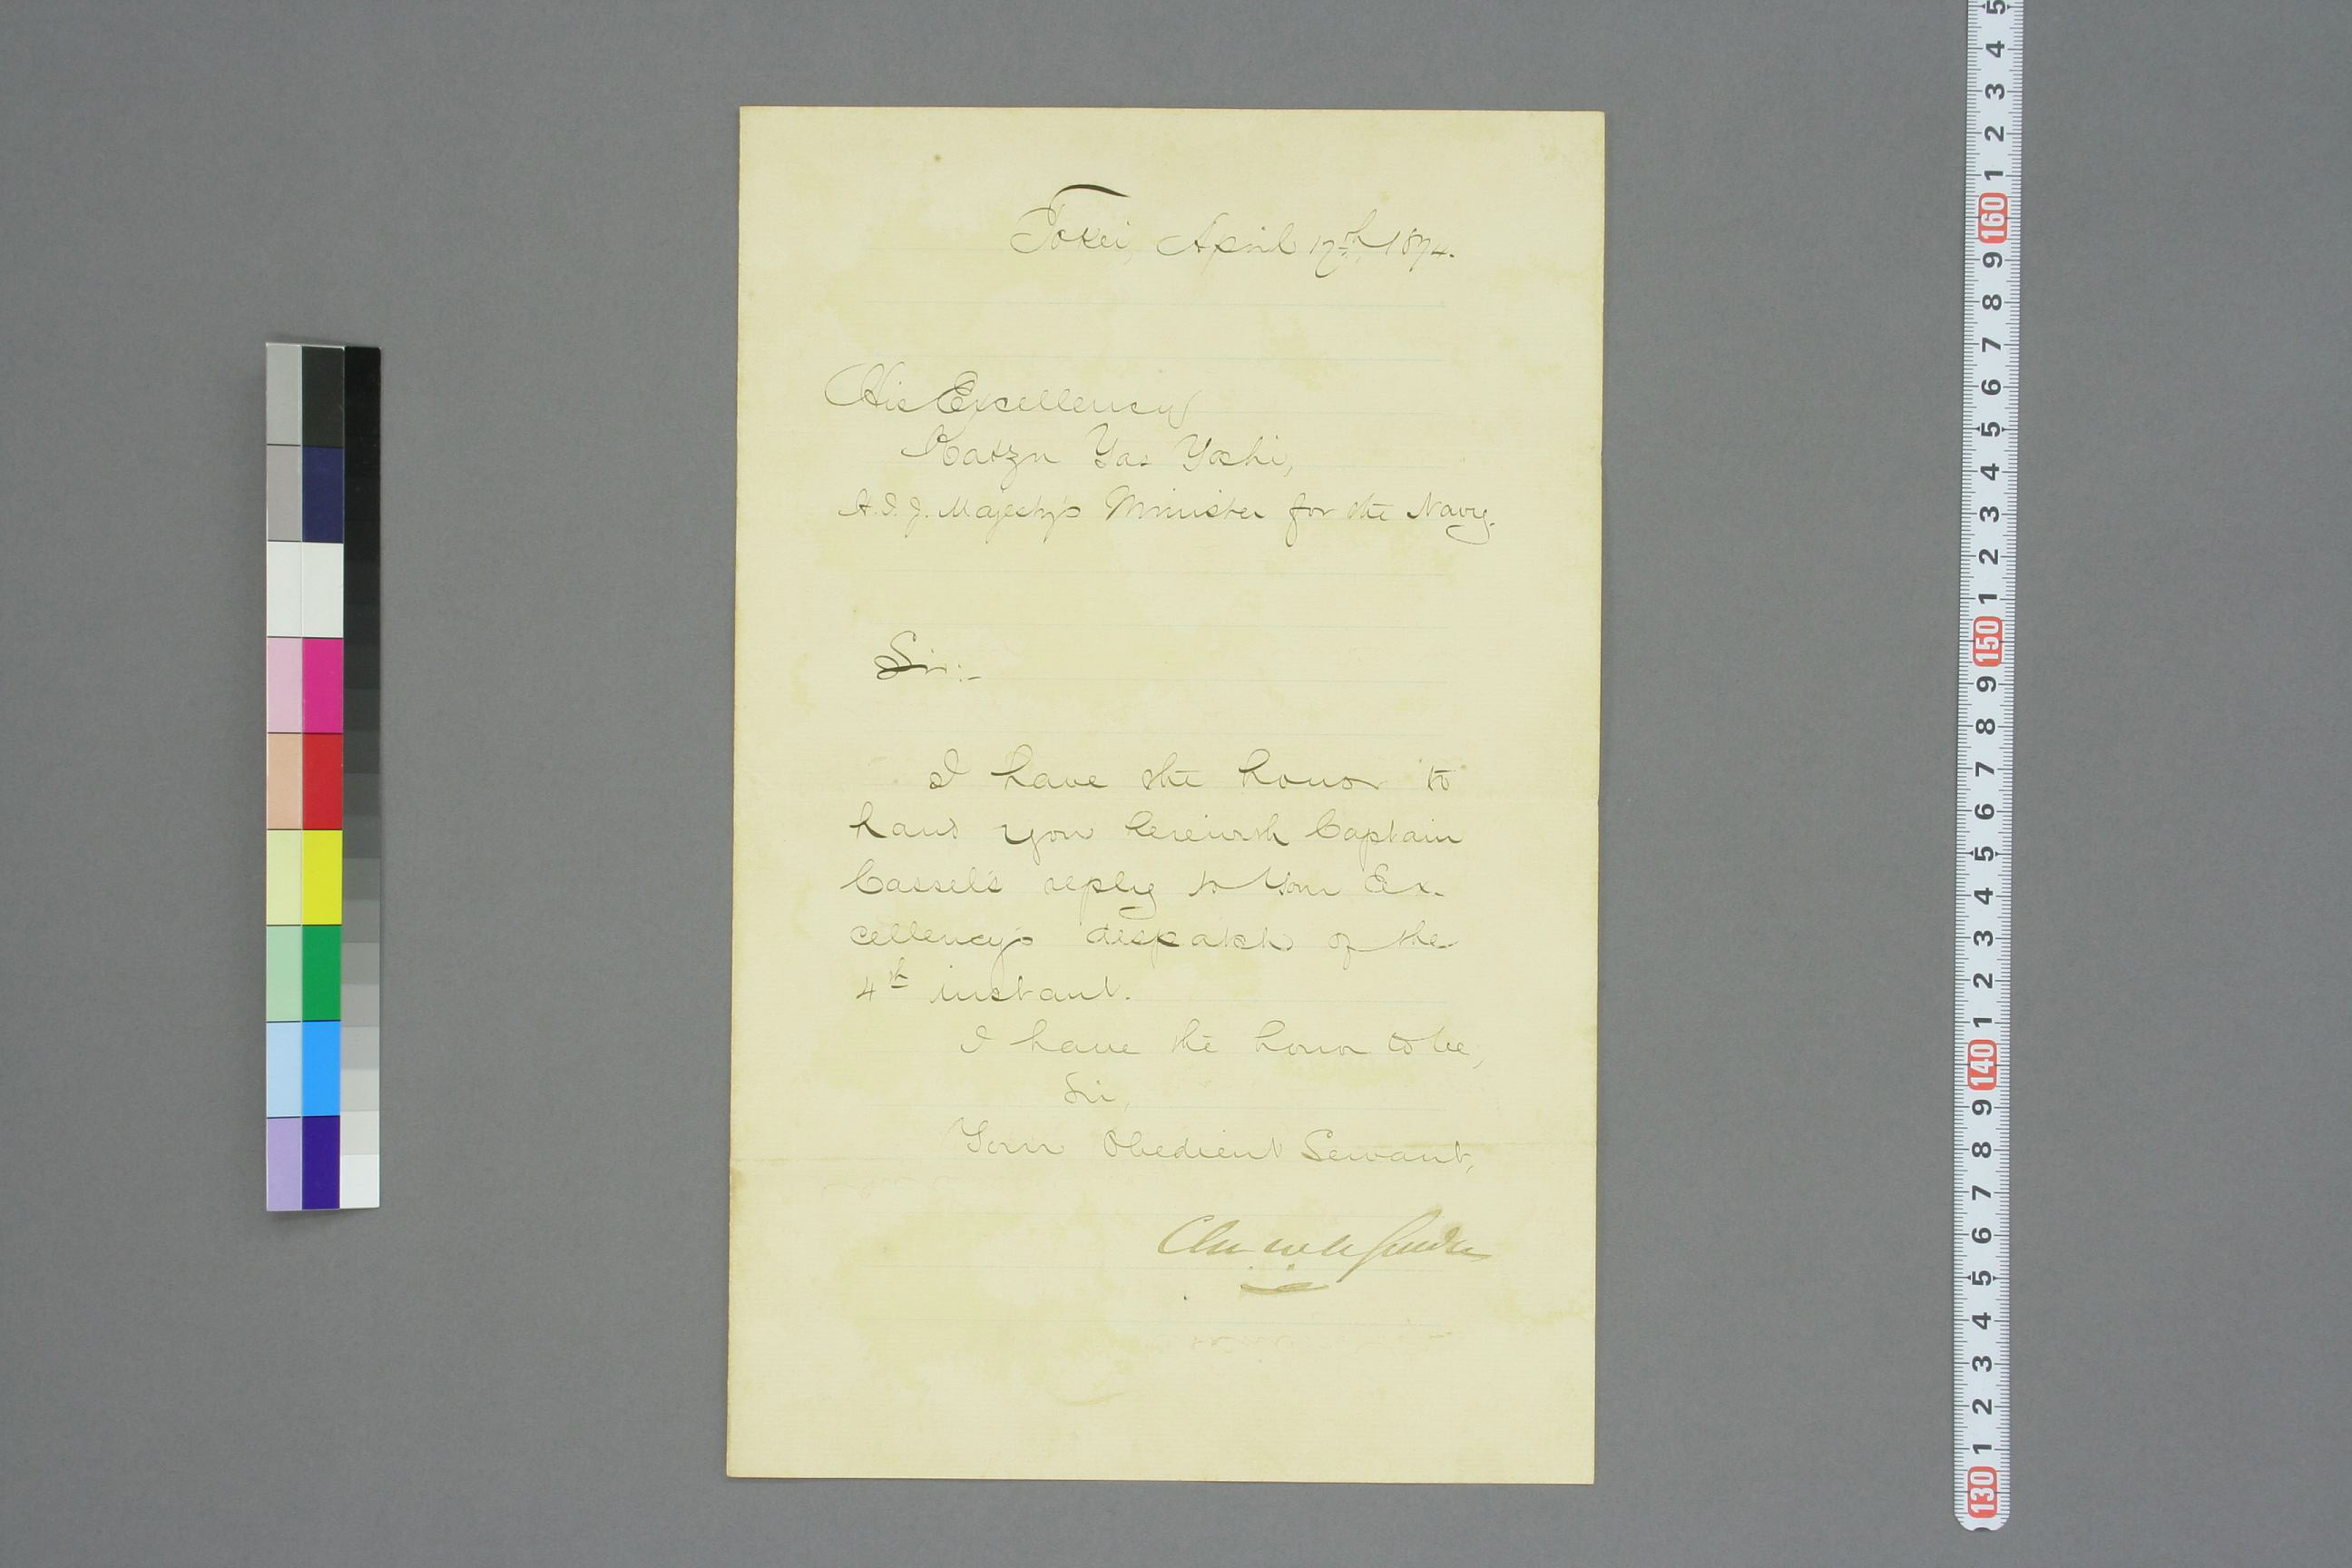 Tokei, April 17th, 1874.
His Excellency
Katzu Yas Yoshi,
H.I.J. Majesty's Minister for the Navy.
Sir:-
I have the honor to
hand you herewith Captain
Cassel's reply to Your Ex-
cellency's despatch of the
4th instant.
I have the honor to be,
Sir,
Your Obedient Servant,
5
4
3
2
1
160
9
8
7
6
5
4
3
2
1
150
9
8
7
6
5
4
3
2
1
140
9
8
7
6
5
4
3
2
1
130